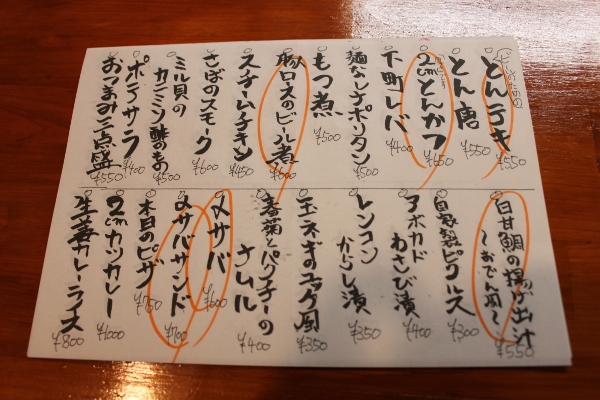 とんテキ ¥550
とん唐 ¥550
2cmとんかつ ¥650
下町レバ ¥400
麺なしナポリタン ¥500
もつ煮 ¥500
豚ロースのビール煮 ¥600
スチームチキン ¥450
さばのスモーク ¥600
ミル貝のカニミソ酢のもの ¥500
ポテサラ ¥400
おつまみ三点盛 ¥550
白甘鯛の揚げ出汁
〜おでん風〜 ¥550
自家製ピクルス ¥300
アボカド
わさび漬 ¥400
レンコン
からし漬 ¥350
玉ネギのユッケ風 ¥350
春菊とパクチーの
ナムル ¥400
〆サバ ¥600
〆サバサンド ¥700
本日のピザ ¥750
2cmカツカレー ¥1000
生姜カレーライス ¥800